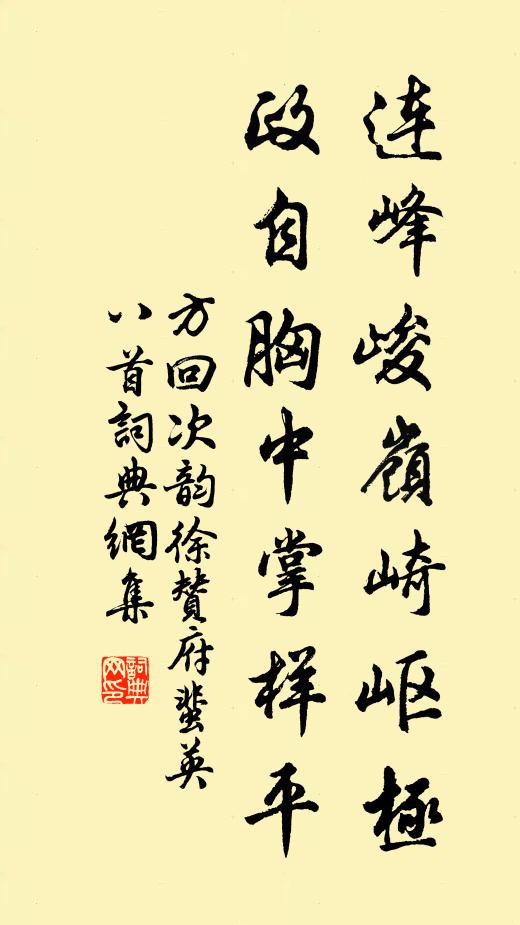 連峰峻嶺崎岖極
政自胸中掌样平
方回次韵徐赞府蜚英
八首詞典網集
詞典网印